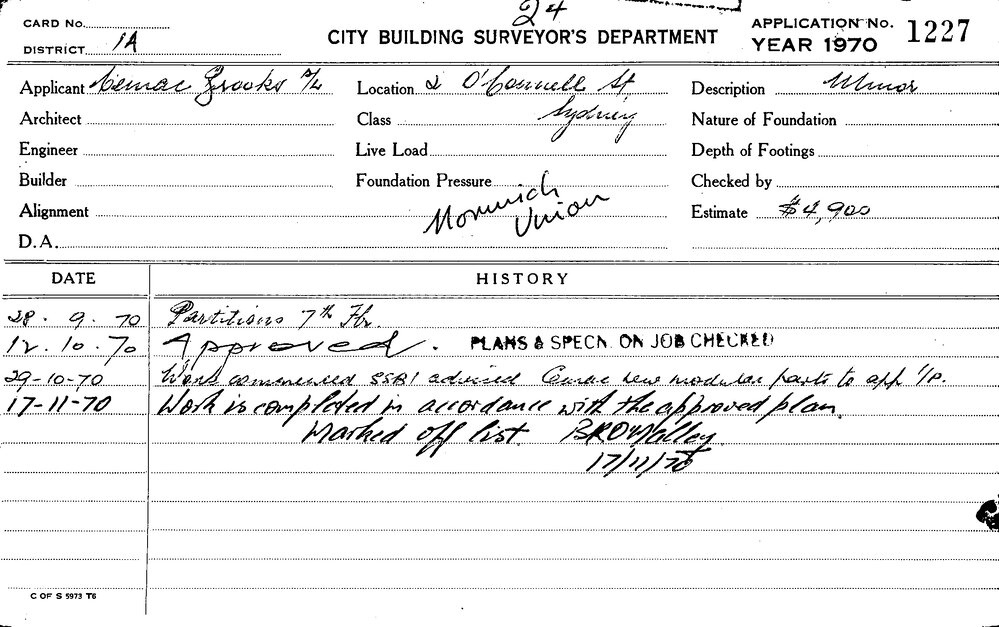 24
CARD NO.
DISTRICT 1A
CITY BUILDING SURVEYOR'S DEPARTMENT
APPLICATION No. 1227
YEAR 1970
Applicant Cemac Brooks P/L
Location 2 O'Connell St
Description Minor
Architect
Class Sydney
Nature of Foundation
Engineer
Live Load
Depth of Footings
Builder
Foundation Pressure
Checked by
Alignment
Norwich
Union
Estimate $4,900
D.A.
DATE HISTORY
28.9.70 Partitions 7th Flr.
12.10.70 Approved. PLANS & SPECN. ON JOB CHECKED
29-10-70 Work commenced advised Cemac new modular parts to app
17-11-70 Work is completed in accordance with the approved plan.
Marked off list. BRO'Malley
17/11/70
C OF S 5973 T6